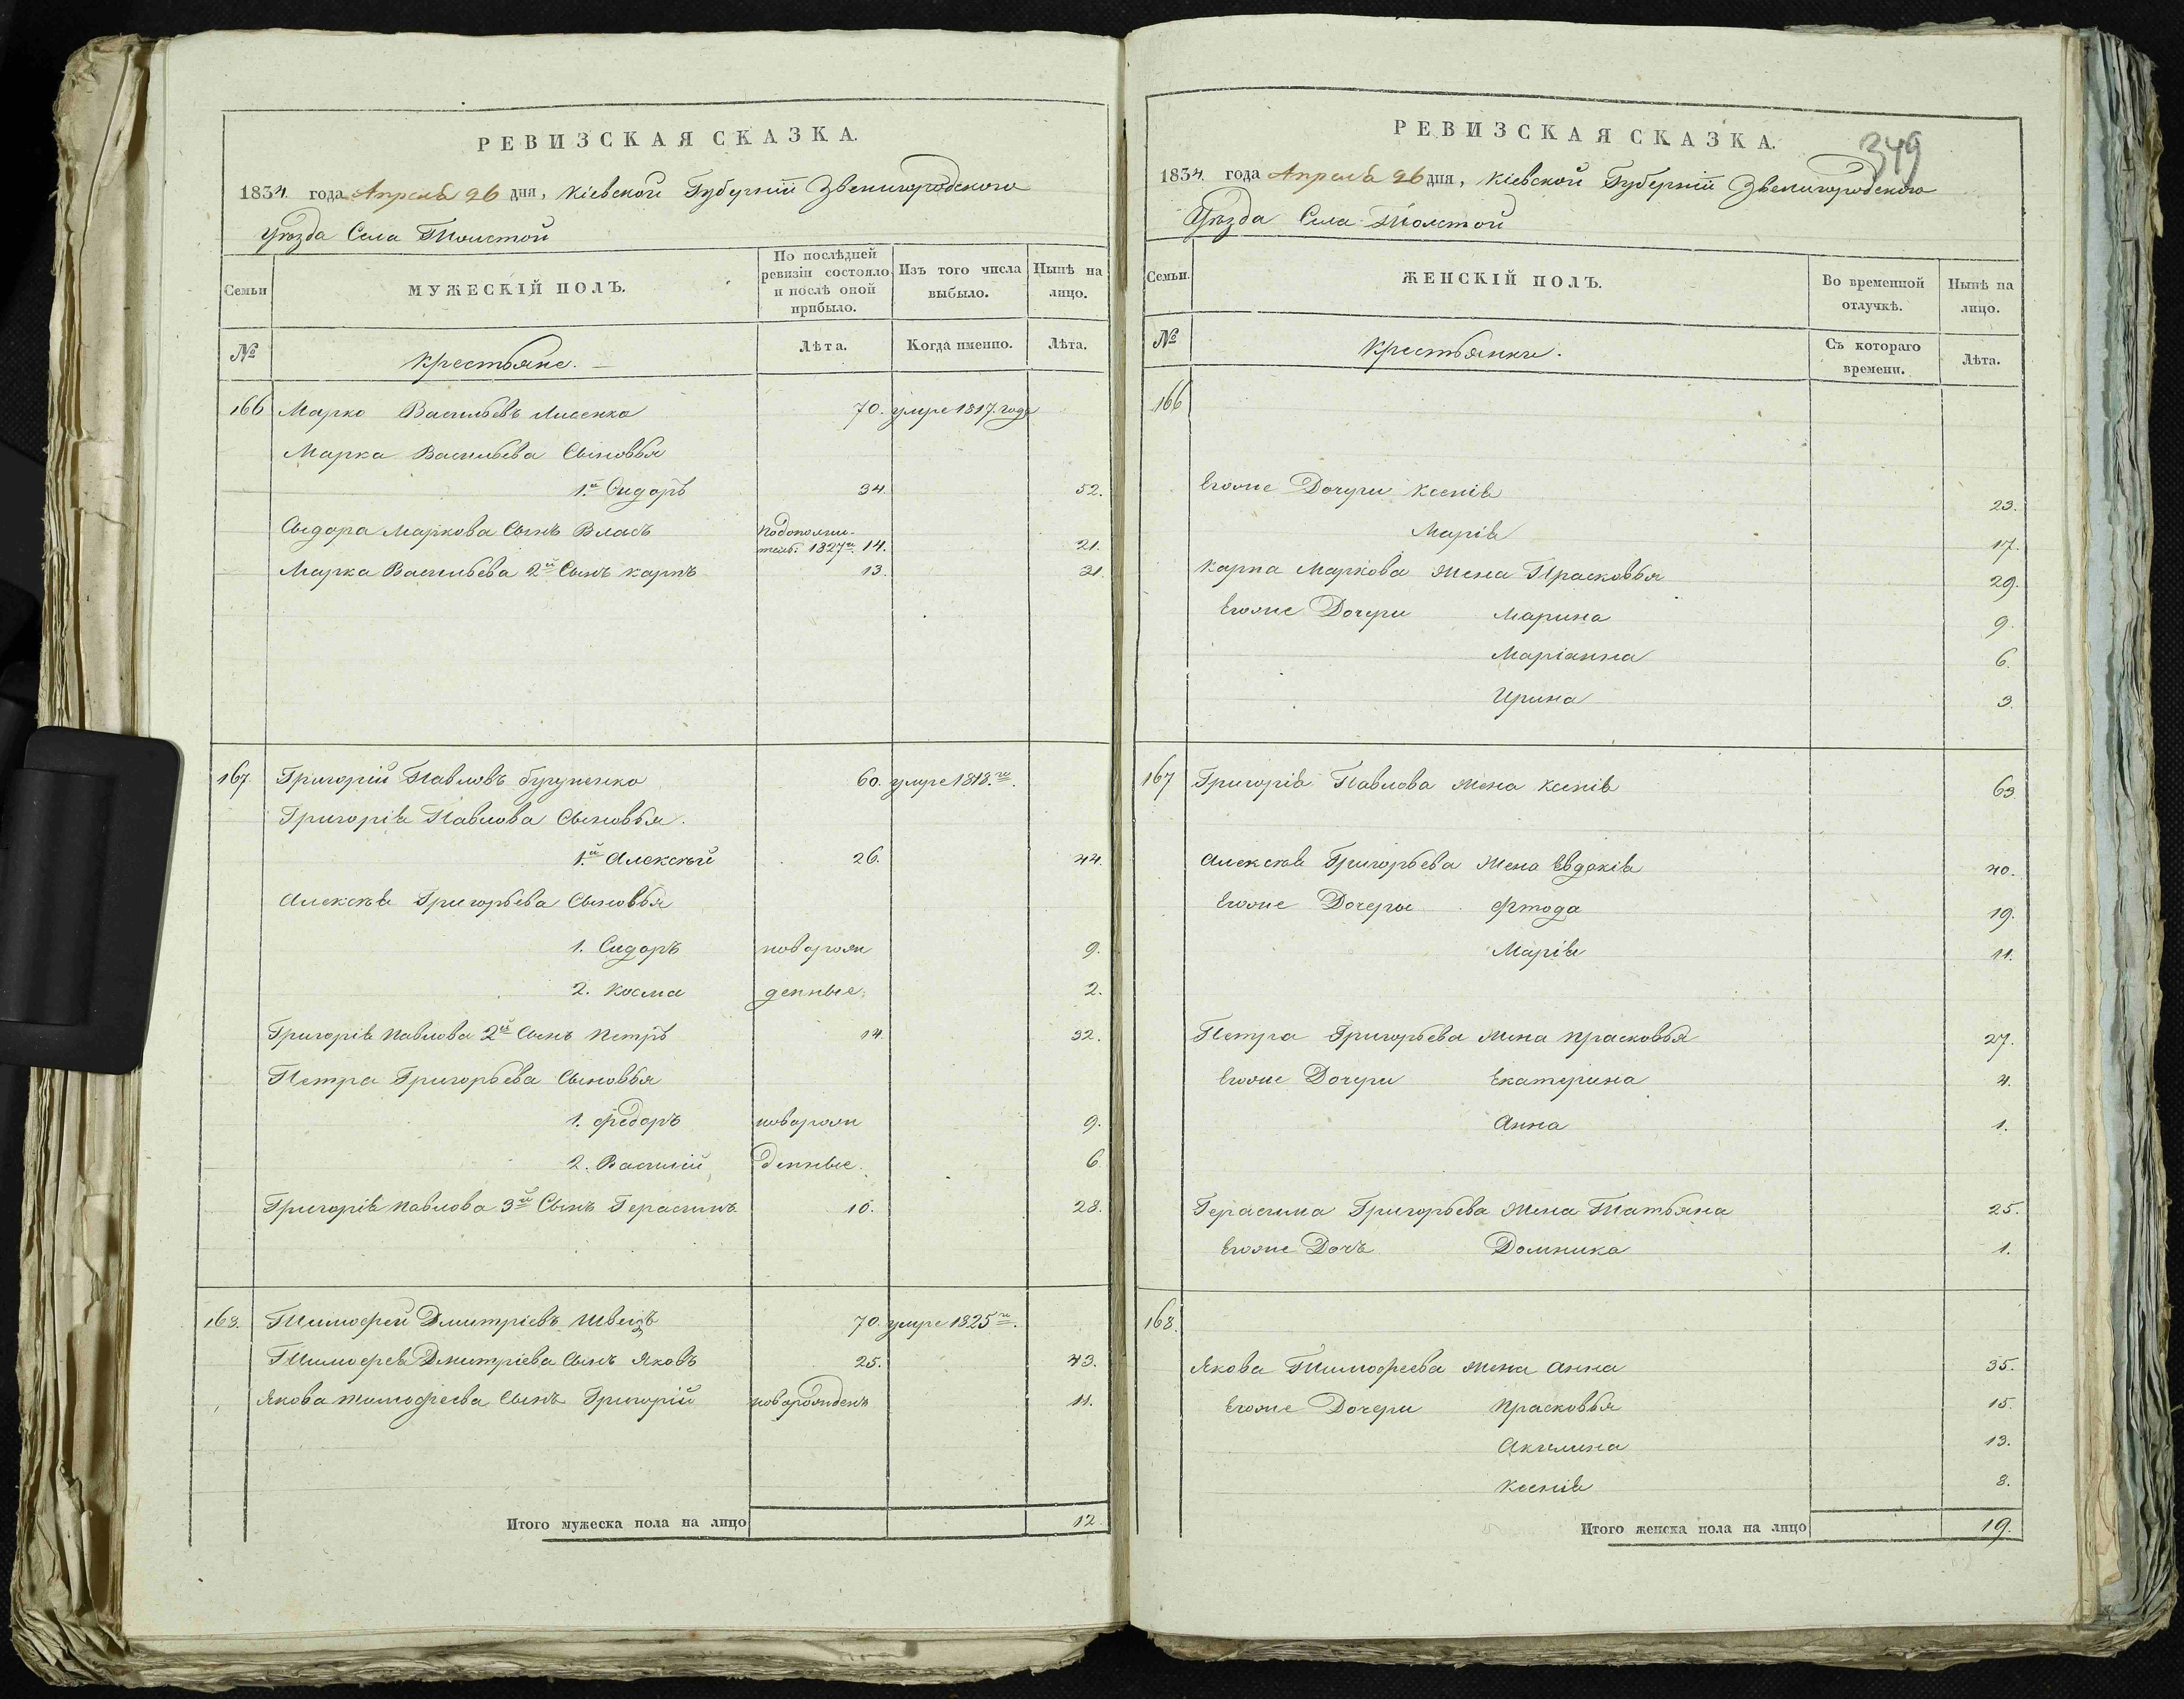 РЕВИЗСКАЯ СКАЗКА.
1834. года Апреля 26 дня, Кіевской Губерніи Звенигородского
Уѣзда Села Толстой
Семьи
МУЖЕСКІЙ ПОЛЪ.
По послѣдней ревизіи состояло и послѣ оной прибыло.
Изъ того числа выбыло.
Нынѣ на лицо.
№
Крестьяне.
Лѣта.
Когда именно.
Лѣта.
166 Марко Васильевъ Лисенко 70. умре 1817. года
Марка Васильева Сыновья
1.й Сидоръ 34. 52.
Сыдора Маркова Сынъ Власъ
по дополни-
тель: 1827го 14. 21.
Марка Васильева 2й Сынъ Карпъ 13. 31.
167 Григорій Павловъ 60. умре 1818.го
Григорія Павлова Сыновья.
1.й Алексѣй 26. 44.
Алексѣя Григорьева Сыновья
1. Сидоръ новорож 9.
2. Косма денные. 2.
Григорія Павлова 2й Сынъ Петръ 14. 32.
Петра Григорьева Сыновья
1. Федоръ новорож 9.
2. Василій денные. 6
Григорія Павлова 3й Сынъ Герасимъ 10. 28.
168. Тимофей Дмитріевъ Швецъ 70. умре 1825го.
Тимофея Дмитріева Сынъ Яковъ 25. 43.
Якова Тимофеева Сынъ Григорій новорожденъ 11.
Итого мужеска пола на лицо 12.
349
РЕВИЗСКАЯ СКАЗКА.
1834. года Апреля 26 дня, Кіевской Губерніи Звенигородского
Уѣзда Села Толстой
Семьи.
ЖЕНСКІЙ ПОЛЪ.
Во временной отлучкѣ.
Нынѣ на лицо.
№
Крестьянки.
Съ котораго времени.
Лѣта.
166
Егоже Дочери Ксенія 23.
Марія 17.
Карпа Маркова жена Прасковья 29.
Егоже Дочери Марина 9.
Маріанна 6.
Ирина 3.
167 Григорія Павлова жена Ксенія 63.
Алексѣя Григорьева жена Евдокія 40.
Егоже Дочери 19.
Марія 11.
Петра Григорьева жена Прасковья 27.
Егоже Дочери Екатерина 4.
Анна 1.
Герасима Григорьева жена Татьяна 25.
Егоже Дочь Домника 1.
168.
Якова Тимофеева жена Анна 35.
Егоже Дочери Прасковья 15.
Акилина 13.
Ксенія 8.
Итого женска пола на лицо 19.